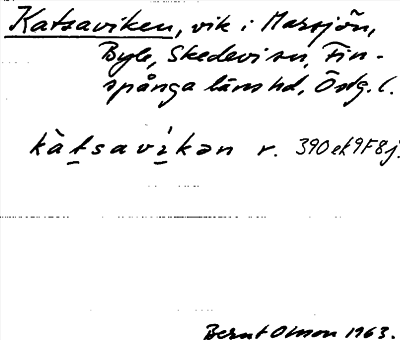 Katsaviken, vik i Marsjön,
Byle, Skedevi sn, Fin-
spånga läns hd, Östg. l.
kàtsavìkən r. 390ek9F8j.
Bernt Olsson 1963.